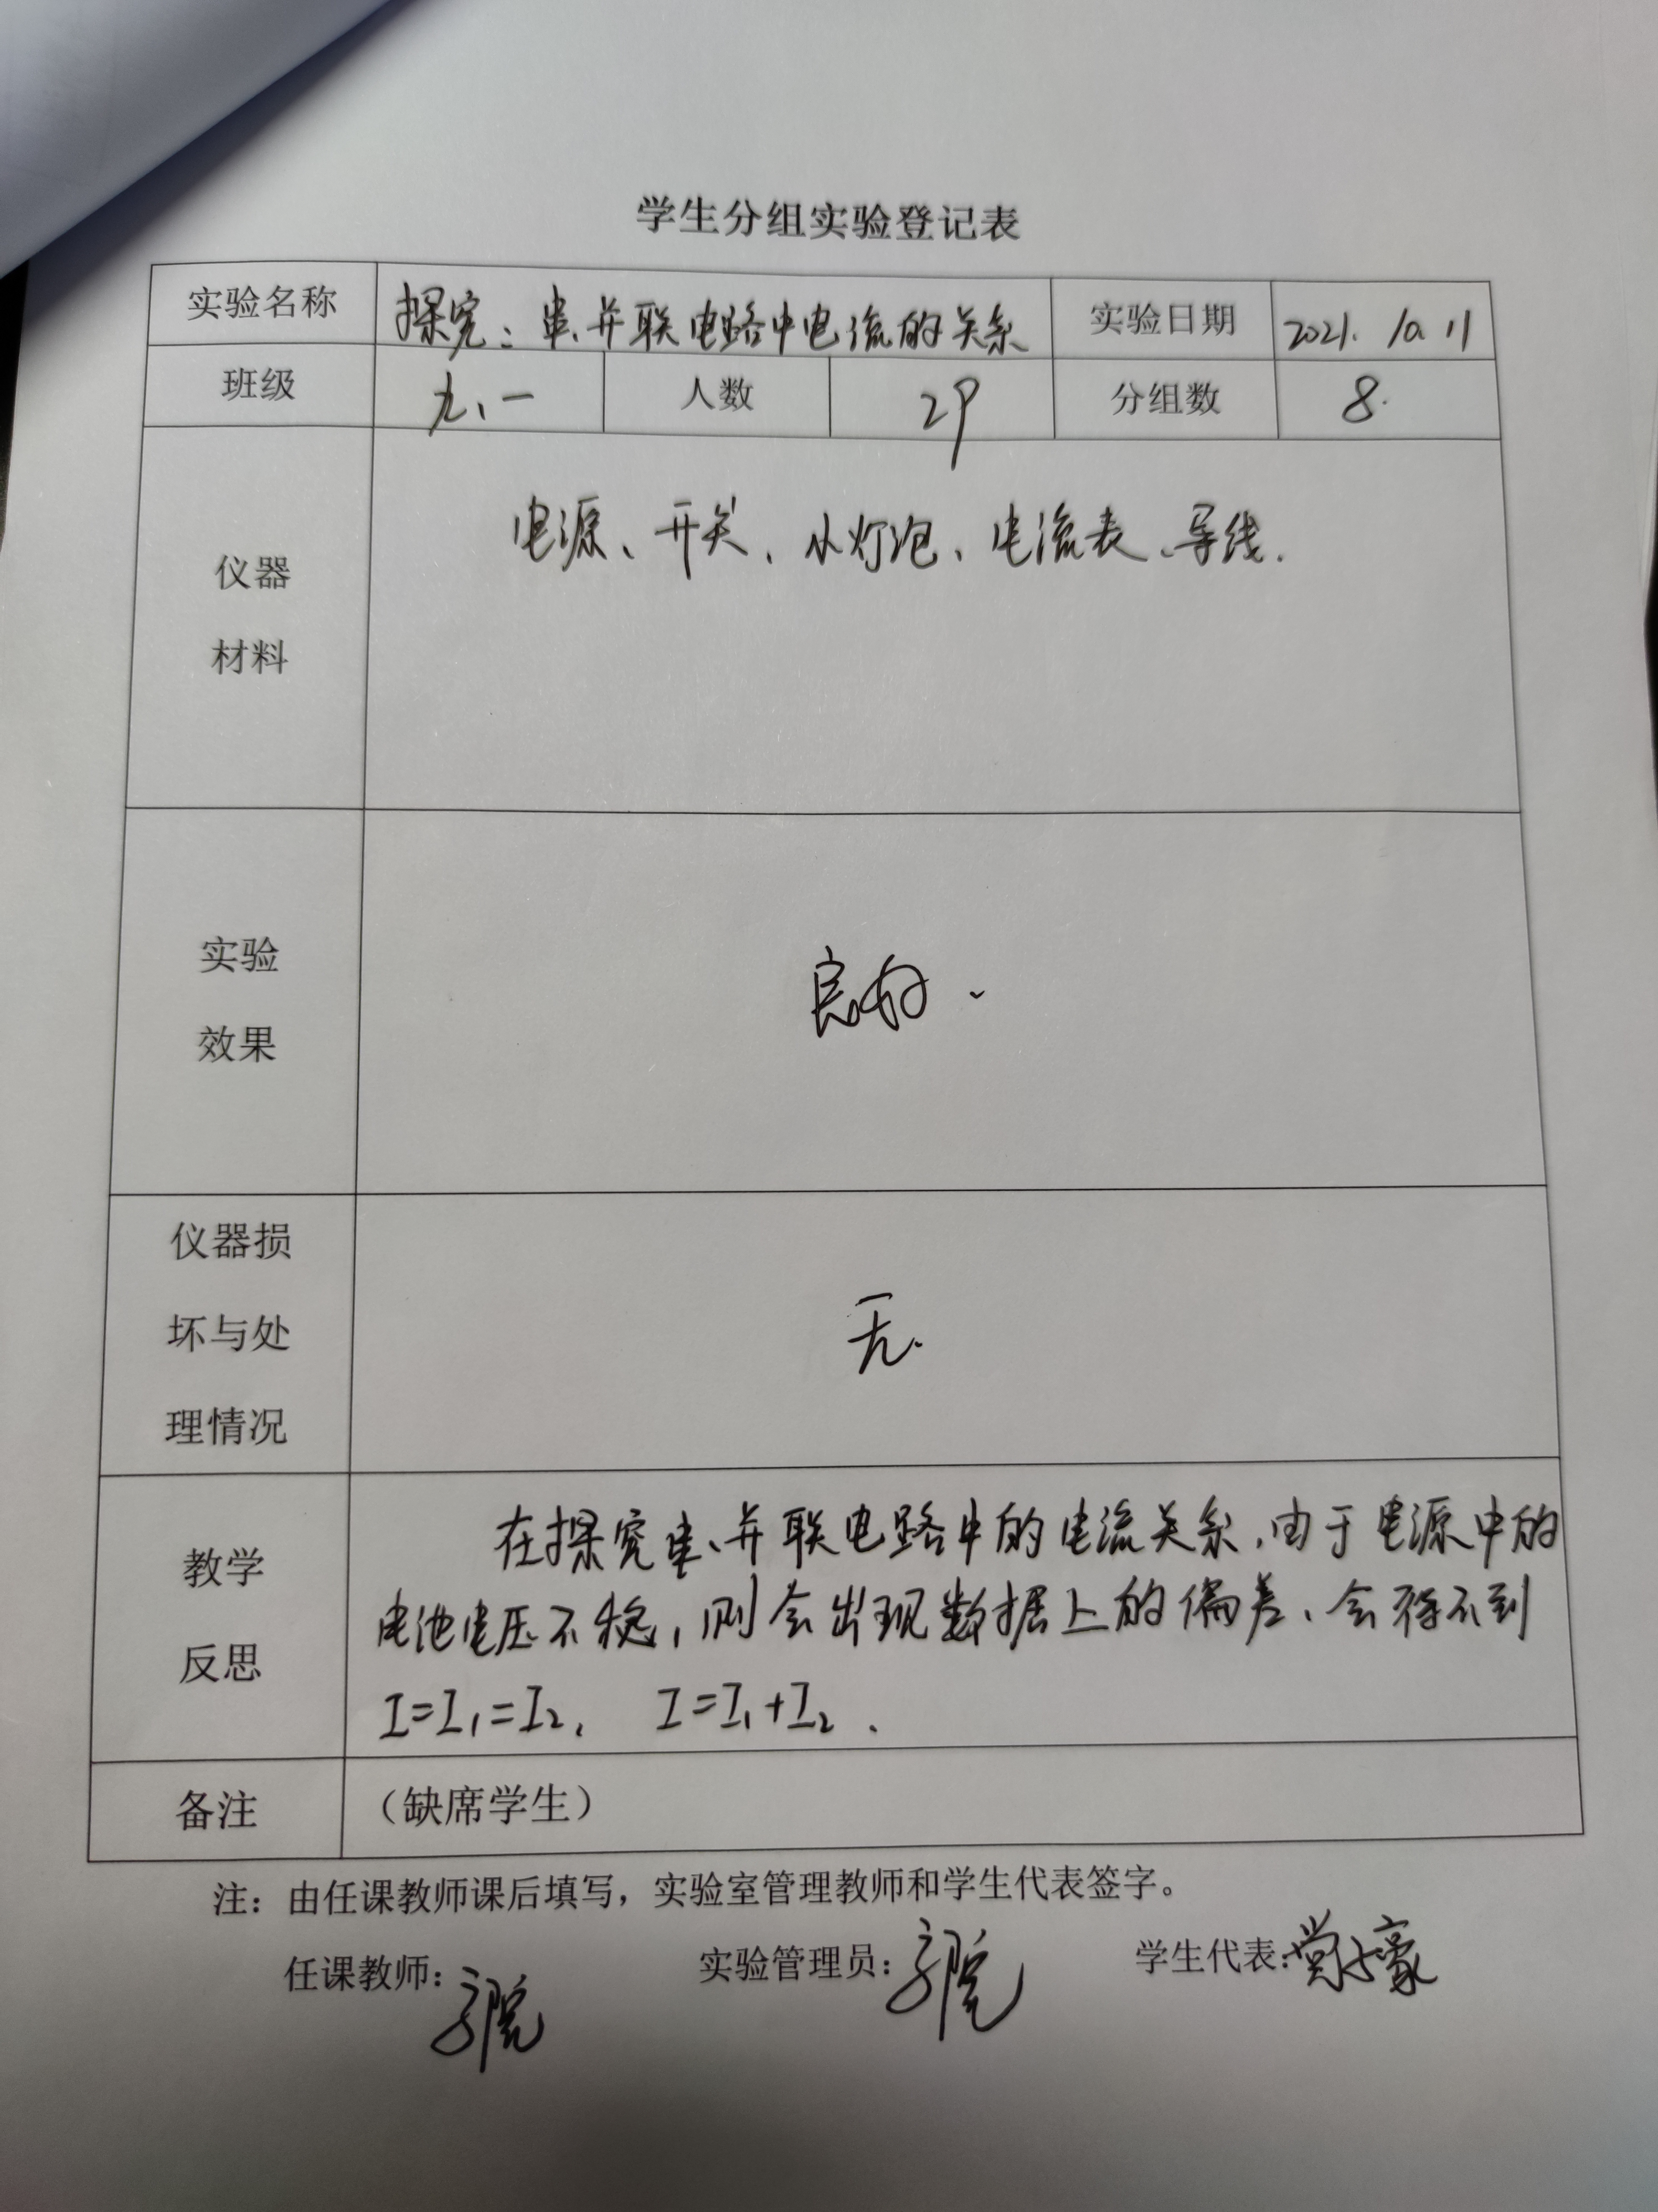 学生分组实验登记表
实验名称 探究：串、并联电路中电流的关系 实验日期 2021.10.11
班级 九、一 人数 29 分组数 8.
仪器
材料
电源、开关、小灯泡、电流表、导线.
实验
效果
良好.
仪器损
坏与处
理情况
无.
教学
反思
在探究串、并联电路中的电流关系,由于电源中的
电池电压不稳,则会出现数据上的偏差、会得不到
I=I₁=I₂, I=I₁+I₂.
备注 （缺席学生）
注：由任课教师课后填写，实验室管理教师和学生代表签字。
任课教师： 实验管理员： 学生代表：